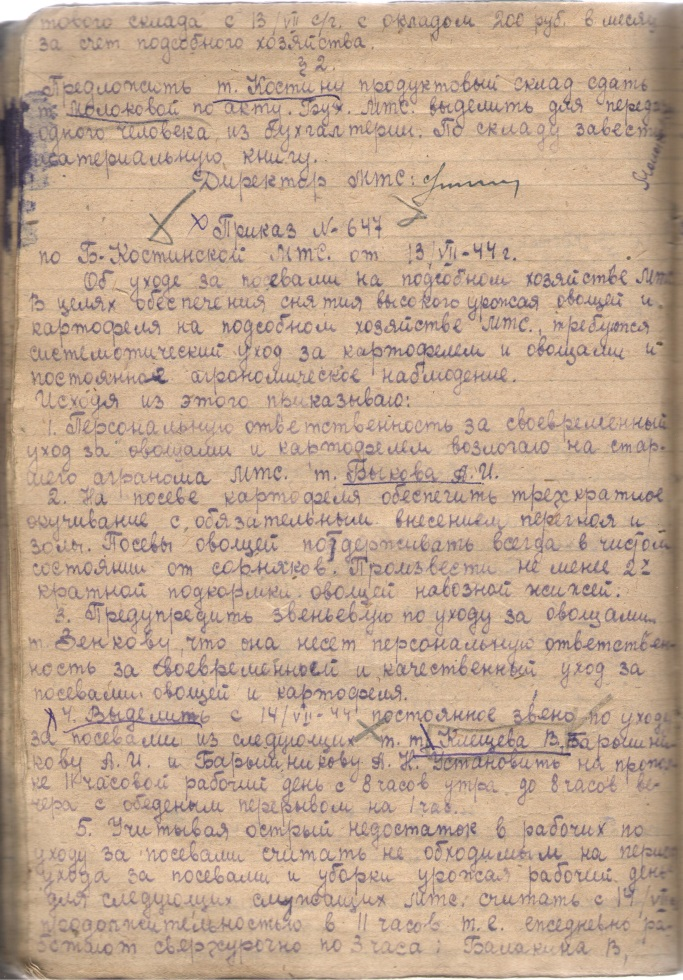 тового склада с 13/VII с/г. с окладом 200 руб. в месяц
за счет подсобного хозяйства.
§ 2.
Предложить т. Костину продуктовый склад сдать
т. Молоковой по акту. Бух. МТС. выделить для переда
одного человека из бухгалтерии. По складу завести
материальную книгу.
Директор МТС:
Приказ № 647
по Б-Костинской МТС. от 13/VII-44 г.
Об уходе за посевами на подсобном хозяйстве МТС
В целях обеспечения снятия высокого урожая овощей и
картофеля на подсобном хозяйстве МТС, требуется
системотический уход за картофелем и овощами и
постоянное агрономическое наблюдение.
Исходя из этого приказываю:
1. Персональную ответственность за своевременный
уход за овощами и картофелем возлогаю на стар-
шего агранома МТС. т. Быкова А.И.
2. На посеве картофеля обеспечить трехкратное
окучивание с обязательным внесением перегноя и
золы. Посевы овощей потдерживать всегда в чистом
состоянии от сорняков. Произвести не менее 2х
кратной подкормки овощей навозной жижей.
3. Предупредить звеньевую по уходу за овощами
т. Зенкову, что она несет персональную ответствен-
ность за своевременной и качественный уход за
посевами овощей и картофеля.
4. Выделить с 14/VII-44 постоянное звено по уходу
за посевами из следующих т.т. Клещева В. Барышни-
кову А.И. и Барышникову А.К. Установить на
11 часовой рабочий день с 8 часов утра до 8 часов ве-
чера с обеденым перерывом на 1 час.
5. Учитывая острый недостаток в рабочих по
уходу за посевами считать не обходимым на период
ухода за посевами и уборки урожая рабочий день
для следующих служащих МТС. считать с 14/VII
продолжительностью в 11 часов т.е. ежедневно ра-
ботают сверхурочно по 3 часа: Балакина В,